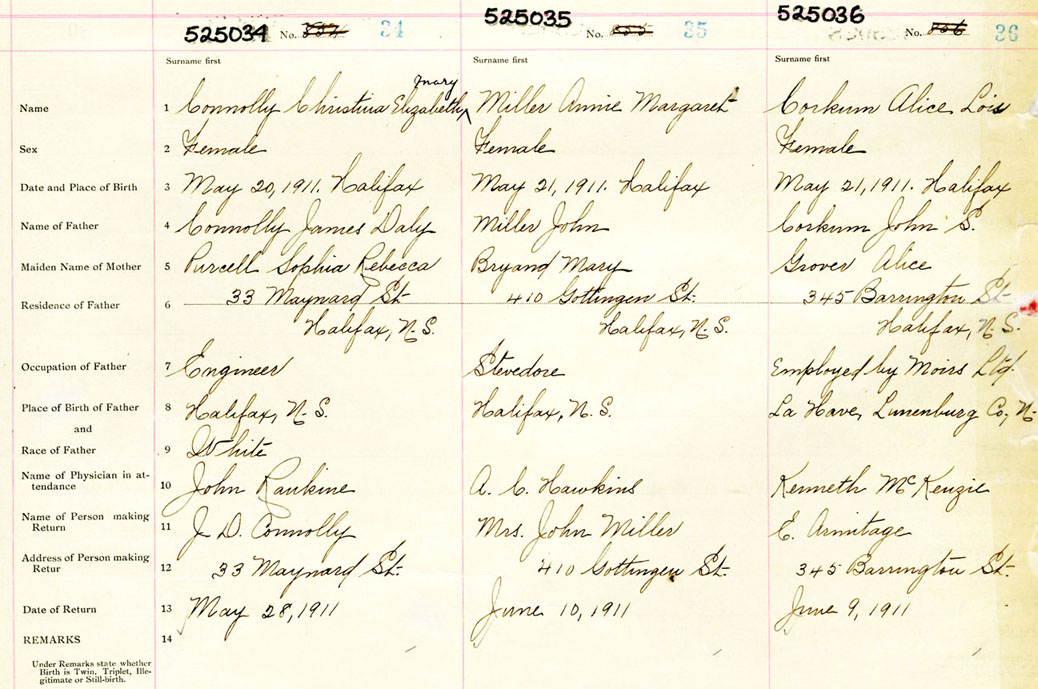 525034 No. 34 525035 No. 35 525036 No. 36
Surname first Surname first Surname first
mary
Name 1 Connolly Christina Elizabeth ^ Miller Annie Margaret Corkum Alice Lois
Sex 2 Female Female Female
Date and Place of Birth 3 May 20, 1911. Halifax May 21, 1911. Halifax May 21, 1911. Halifax
Name of Father 4 Connolly James Daly Miller John Corkum John S.
Maiden Name of Mother 5 Purcell Sophia Rebecca Bryand Mary Grover Alice
Residence of Father 6 33 Maynard St. 410 Gottingen St. 345 Barrington St.
Halifax, N.S. Halifax, N.S. Halifax, N.S.
Occupation of Father 7 Engineer Stevedore Employed by Moirs Ltd.
Place of Birth of Father 8 Halifax, N.S. Halifax, N.S. La Have, Lunenburg Co, N.
and
Race of Father 9 White
Name of Physician in at-
tendance 10 John Rankine A. C. Hawkins Kenneth McKenzie
Name of Person making
Return 11 J. D. Connolly Mrs. John Miller E. Armitage
Address of Person making
Retur 12 33 Maynard St. 410 Gottingen St. 345 Barrington St.
Date of Return 13 May 28, 1911 June 10, 1911 June 9, 1911
REMARKS 14
Under Remarks state whether
Birth is Twin, Triplet, Ille-
gitimate or Still-birth.